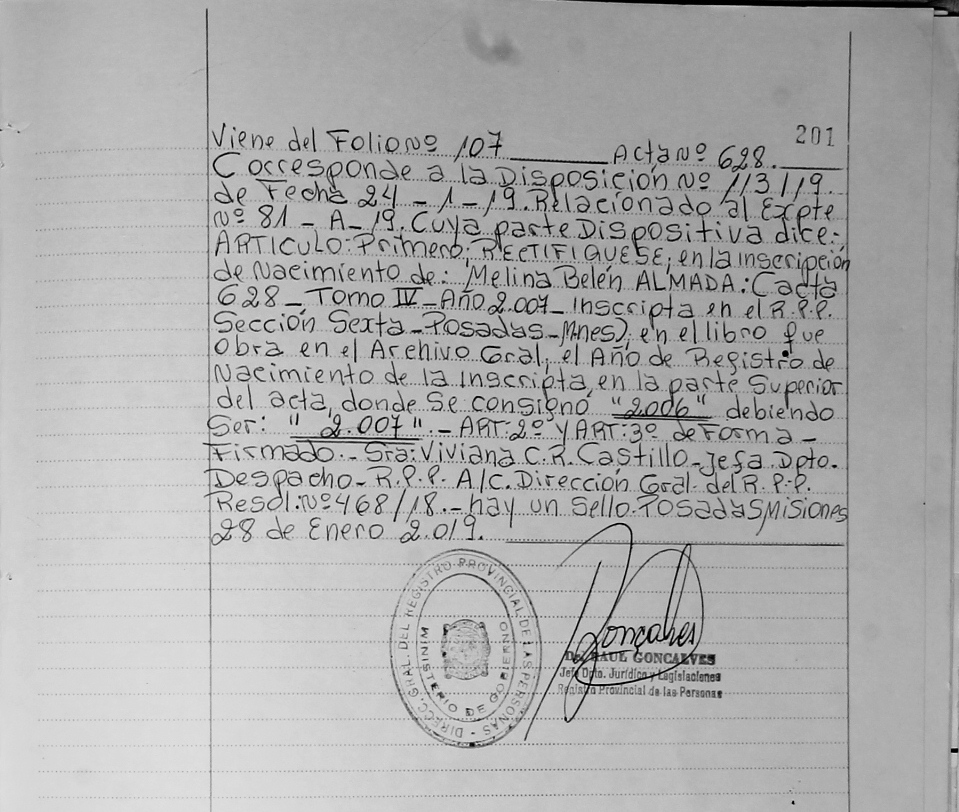 201
Viene del Folio Nº 107 ______ Acta Nº 628. ____
Corresponde a la Disposición Nº 113/19.
de Fecha 24 - 1 - 19. Relacionado al Expte
Nº 81 - A - 19. Cuya parte Dispositiva dice:
ARTICULO: Primero; RECTIFIQUESE; en la inscripción
de Nacimiento de: Melina Belén ALMADA: (acta
628 - Tomo IV - Año 2.007 - Inscripta en el R.P.P.
Sección Sexta - Posadas - Mnes), en el libro que
Obra en el Archivo Gral, el Año de Registro de
Nacimiento de la Inscripta, en la parte Superior
del acta, donde Se consignó "2.006" debiendo
Ser: "2.007". - ART: 2º Y ART: 3º de Forma -
Firmado. - Sra: Viviana C.R. Castillo - Jefa Dpto.
Despacho - R.P.P. A/C. Dirección Gral. del R.P.P.
Resol: Nº 468/18. - hay un Sello. Posadas, Misiones
28 de Enero 2.019. ______
DIRECC. GRAL. DEL REGISTRO PROVINCIAL DE LAS PERSONAS -
MINISTERIO DE GOBIERNO
Goncalves
Dr. RAUL GONCALVES
Jefe Dpto. Jurídico y Legislaciones
Registro Provincial de las Personas